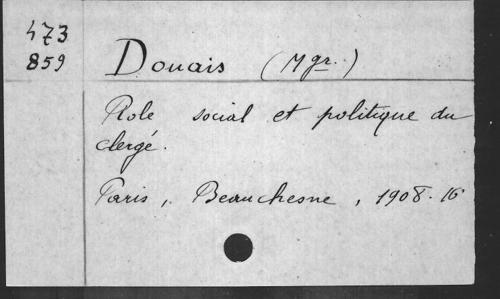 473
859
Douais (Mgr.)
Role social et politique du
clergé.
Paris, Beauchesne, 1908. 16